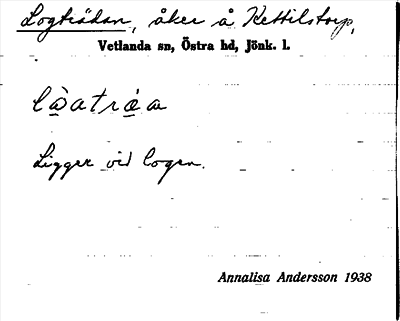 Logträdan, åker å Kettilstorp,
Vetlanda sn, Östra hd, Jönk. l.
Ligger vid logen.
Annalisa Andersson 1938